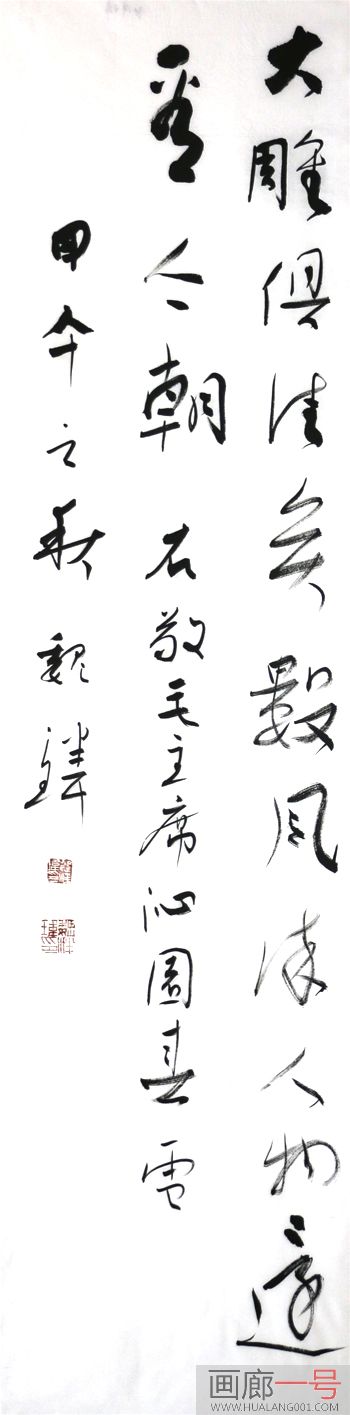 大雕俱往矣數風流人物還
看今朝 右敬毛主席沁園春雪
甲午之秋 魏
画廊一号
WWW.HUALANG001.COM